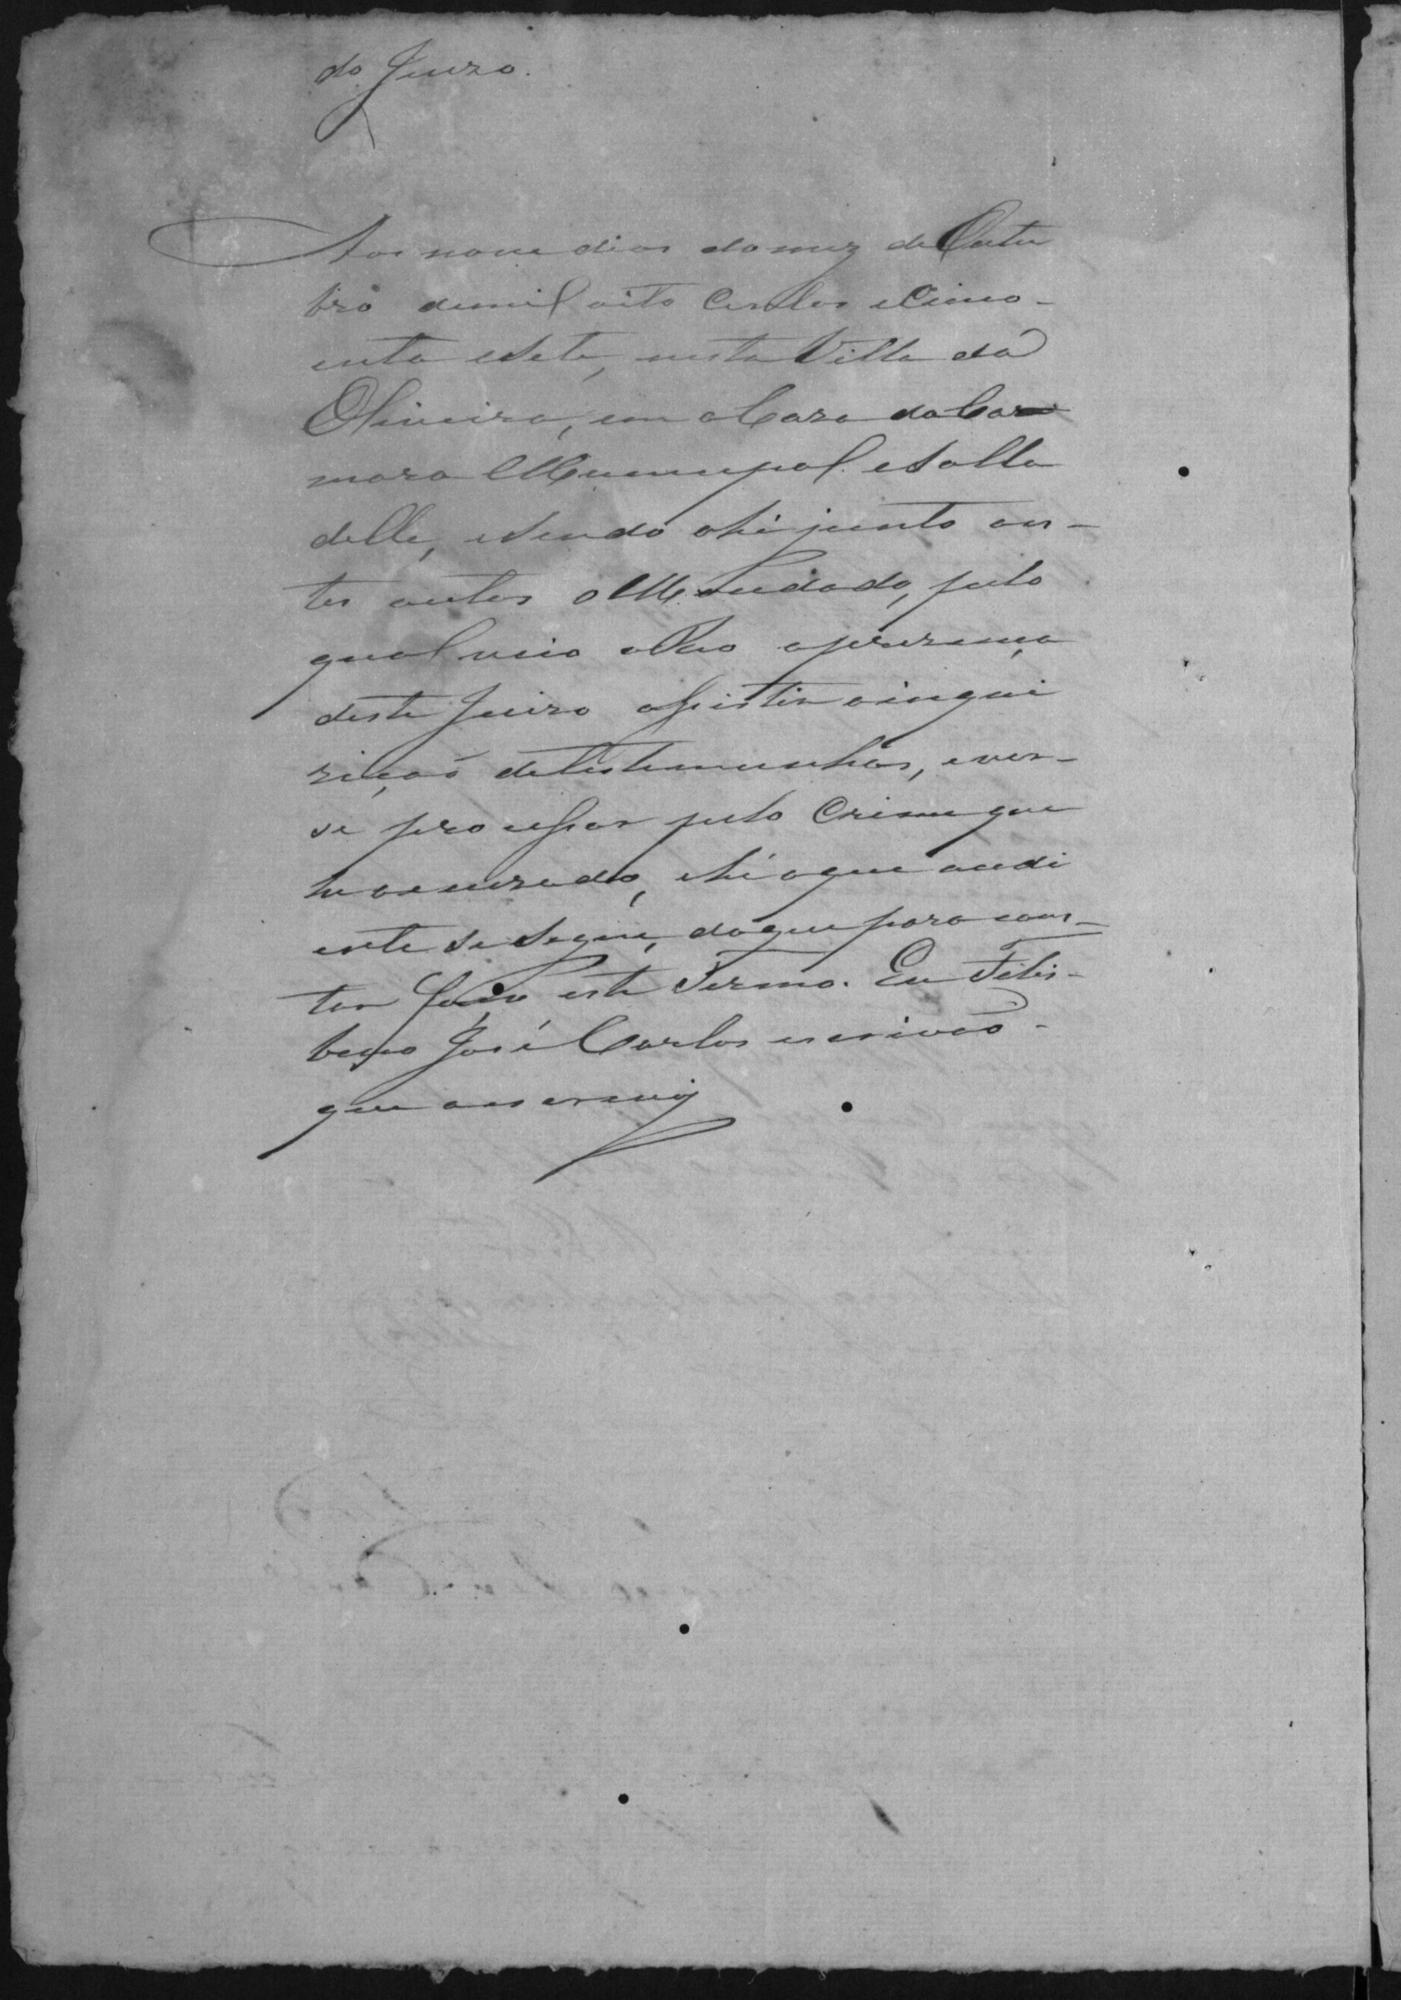 do Juizo.
Aos nove dias do mez de Outu
bro de mil oito Centos e Cinco-
enta e Sete, nesta Villa da
Oliveira, em a Caza da Ca
mara Municipal e Salla
della, e Sendo ahi junto an-
tes autos o Mandado, pelo
qual veio o Reo a prezença
deste Juizo assistir a inqui
rição de testemunhas, e ver-
se processar pelo Crime que
he acuzado, e hé o que audi
ente se Segue, do que para cons-
tar faço este Termo. Eu Felis-
bino José Carlos escrivão
que o escrevij